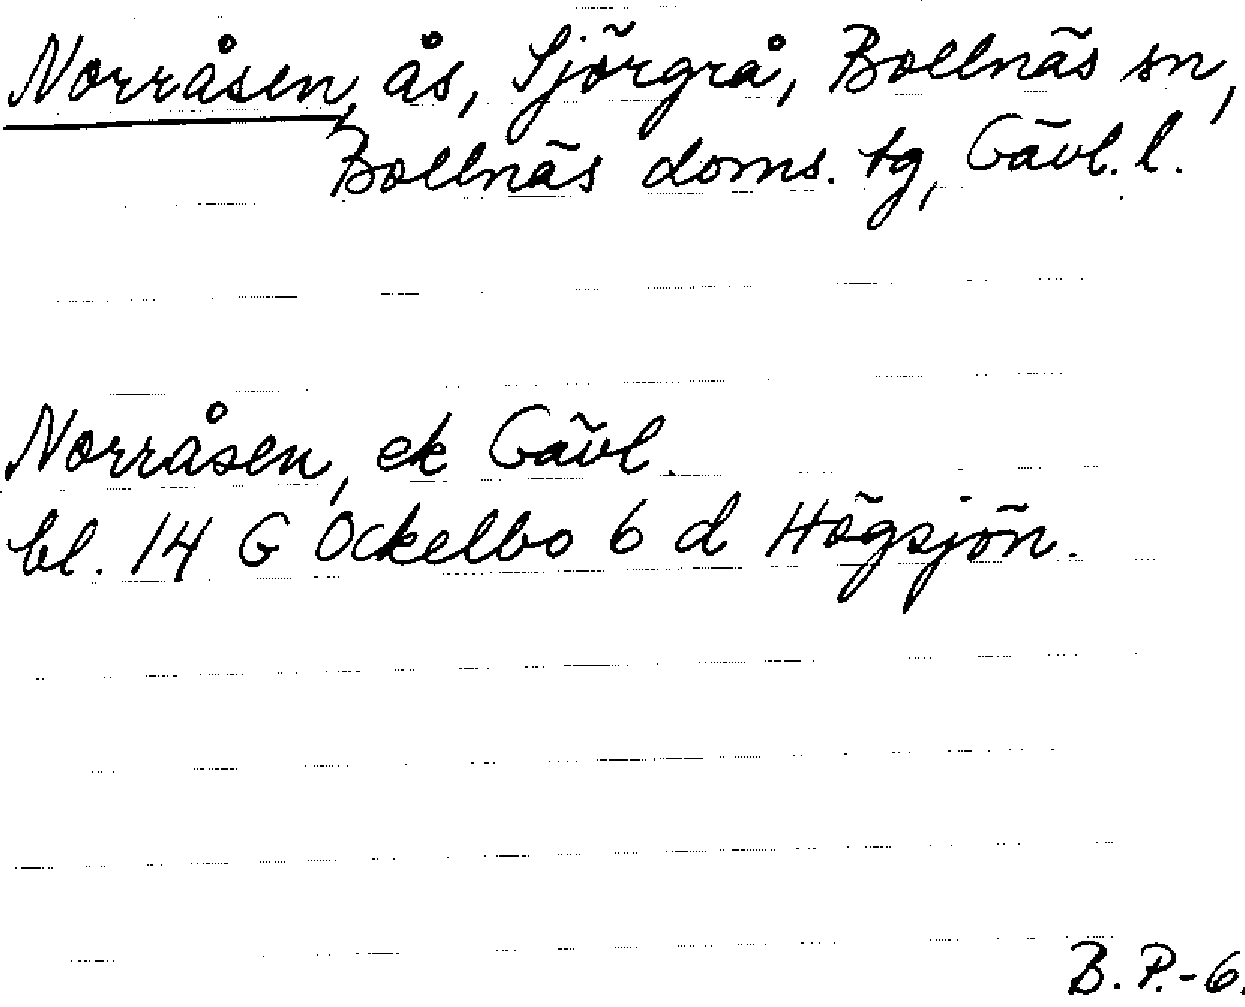 Norråsen, ås, Sjörgrå, Bollnäs sn,
Bollnäs doms. tg, Gävl. l.
Norråsen, ek Gävl.
bl. 14 G Ockelbo 6 d Högsjön.
B. P. - 6.